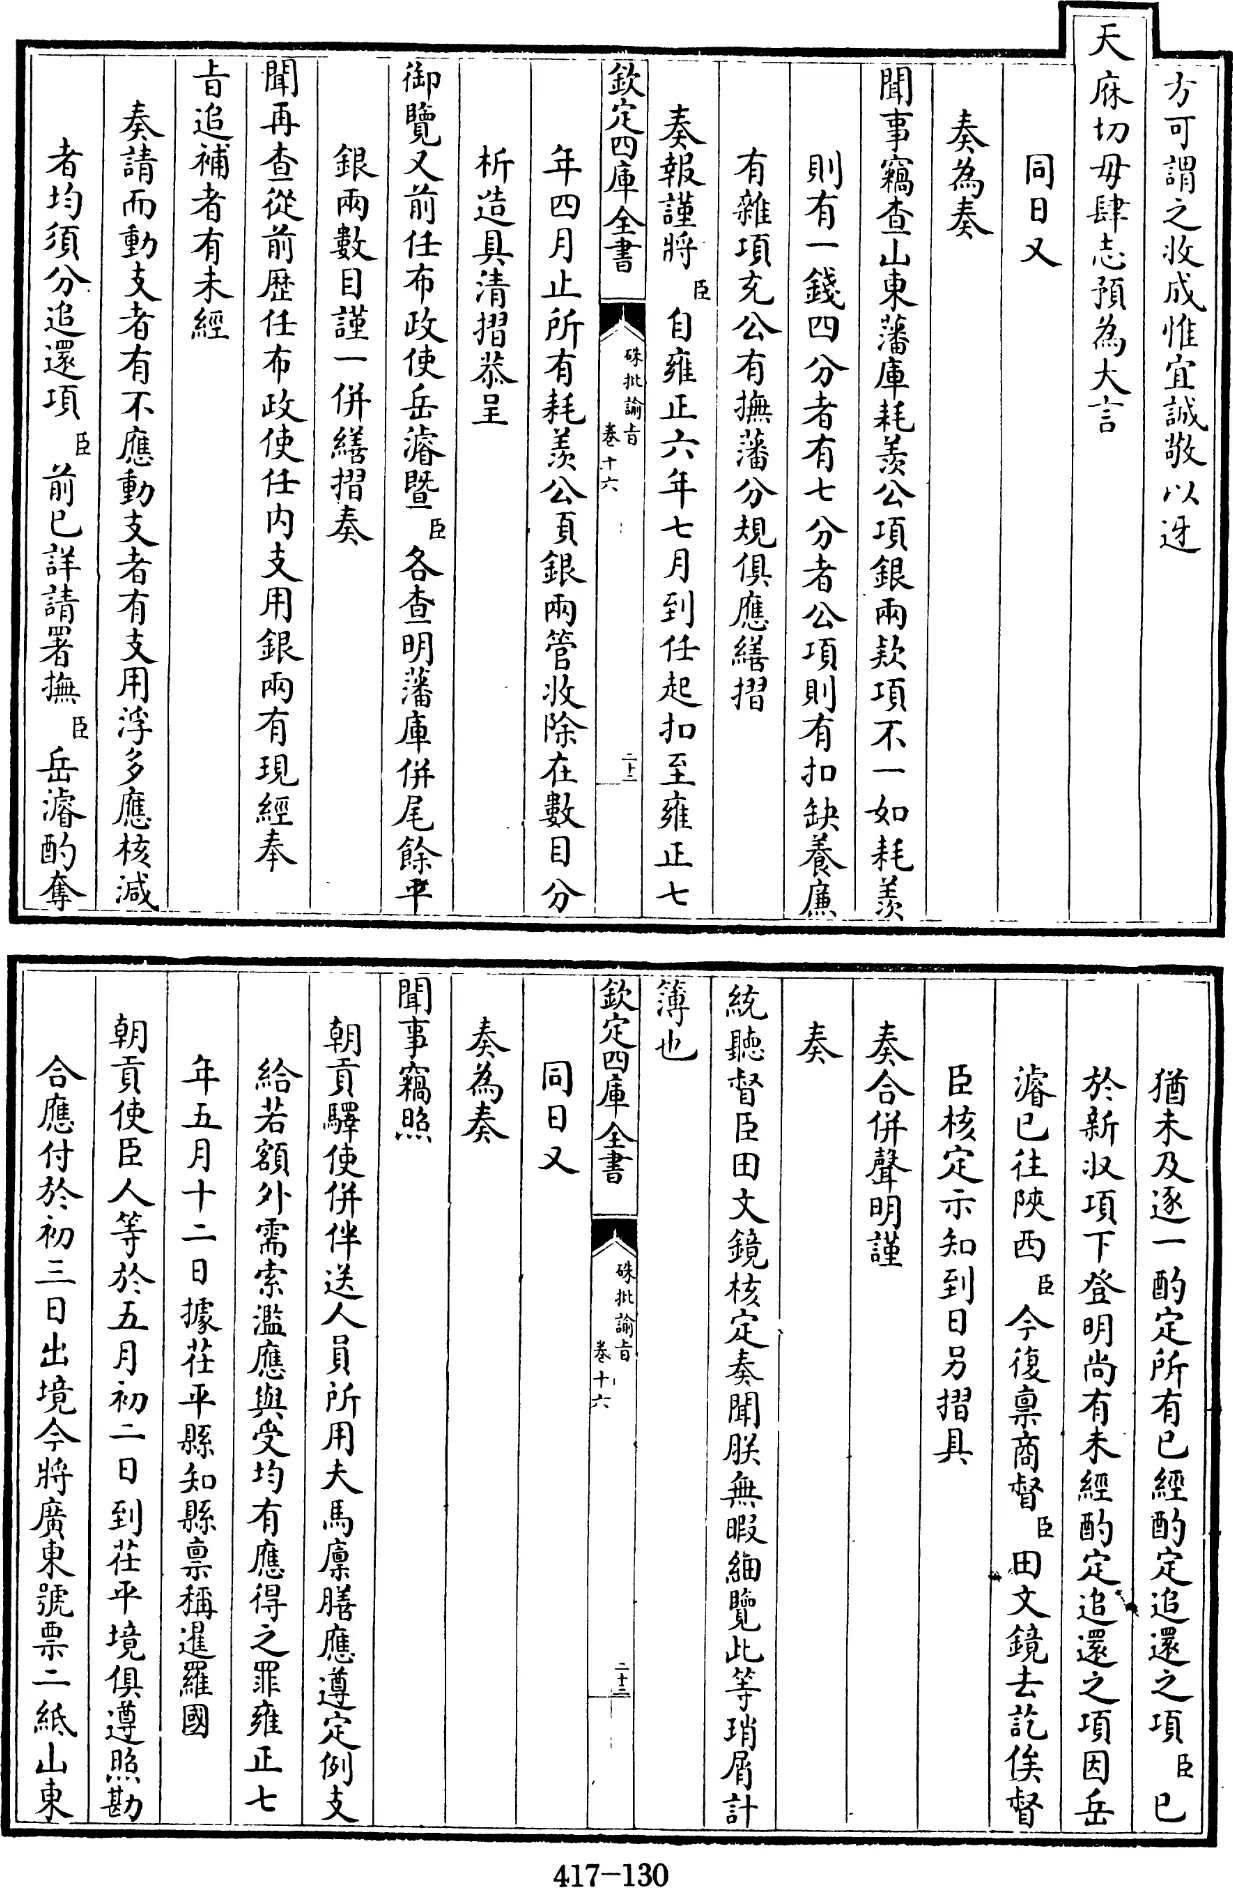 方可謂之收成惟宜誠敬以迓
天庥切毋肆志預為大言
同日又
奏為奏
聞事竊查山東藩庫耗羨公項銀兩款項不一如耗羨
則有一錢四分者有七分者公項則有扣缺養廉
有雜項充公有撫藩分規俱應繕摺
奏報謹將臣自雍正六年七月到任起扣至雍正七
欽定四庫全書 硃批諭旨 卷十六 二十二
年四月止所有耗羨公項銀兩管收除在數目分
析造具清摺恭呈
御覽又前任布政使岳濬暨臣各查明藩庫併尾餘平
銀兩數目謹一併繕摺奏
聞再查從前歷任布政使任内支用銀兩有現經奉
旨追補者有未經
奏請而動支者有不應動支者有支用浮多應核減
者均須分追還項臣前已詳請署撫臣岳濬酌奪
猶未及逐一酌定所有已經酌定追還之項臣已
於新收項下登明尚有未經酌定追還之項因岳
濬已往陝西臣今復禀商督臣田文鏡去訖俟督
臣核定示知到日另摺具
奏合併聲明謹
奏
統聽督臣田文鏡核定奏聞朕無暇細覽此等瑣屑計
簿也
欽定四庫全書 硃批諭旨 卷十六 二十三
同日又
奏為奏
聞事竊照
朝貢驛使併伴送人員所用夫馬廩膳應遵定例支
給若額外需索濫應與受均有應得之罪雍正七
年五月十二日據茌平縣知縣禀稱暹羅國
朝貢使臣人等於五月初二日到茌平境俱遵照勘
合應付於初三日出境今將廣東號票二紙山東
417-130